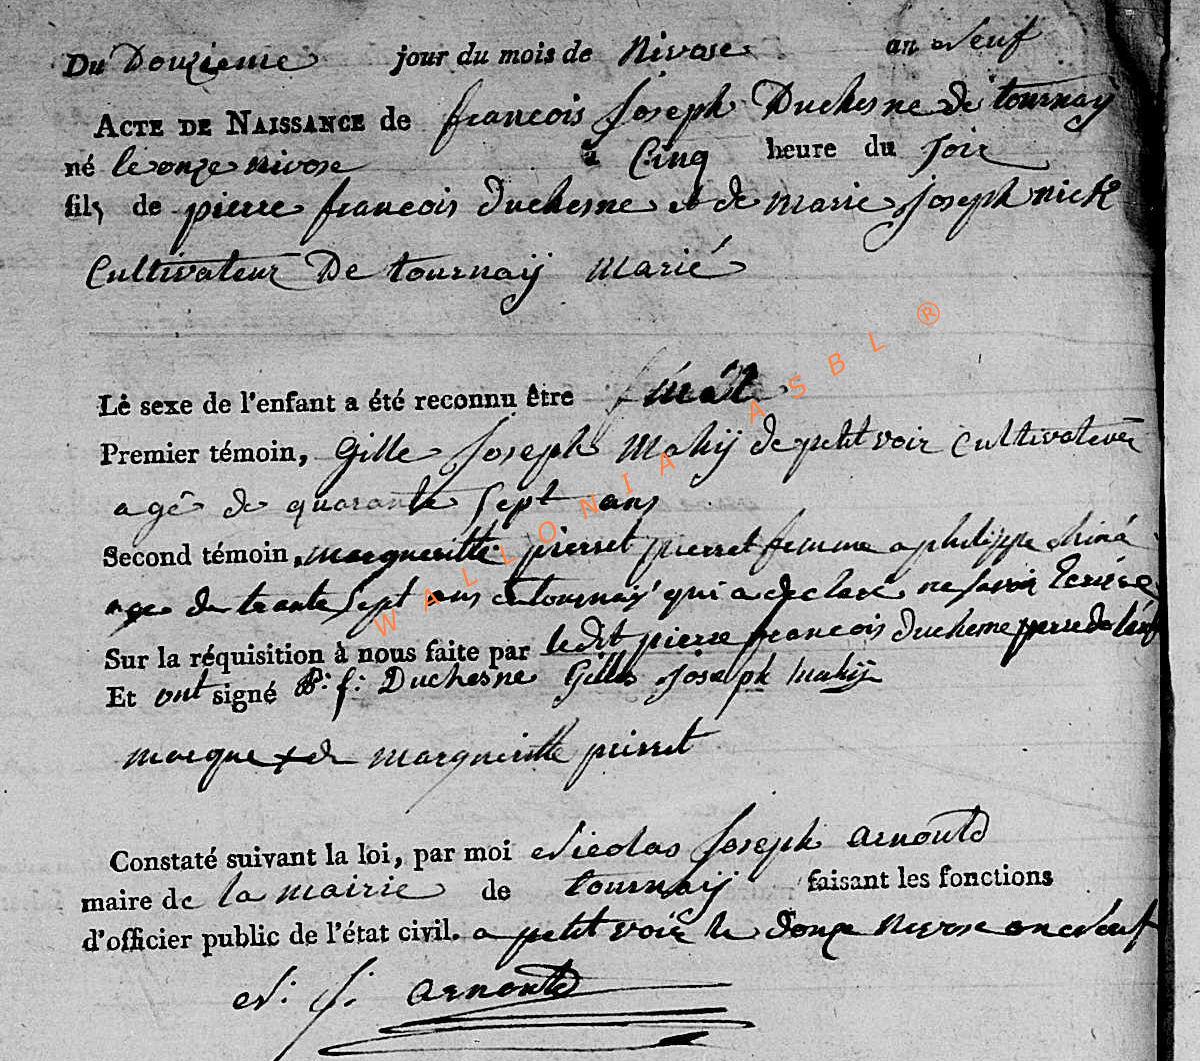 Du Douzieme jour du mois de Nivose an Neuf
ACTE DE NAISSANCE de francois Joseph Duchesne de tournay
né le onze nivose à Cinq heure du soir
fils de pierre francois Duchesne et de Marie Joseph nick
Cultivateur De tournaÿ Marié
Le sexe de l'enfant a été reconnu être mâle
Premier témoin, Gille Joseph Mahÿ de petitvoir cultivateur
agé de quarante sept ans
Second témoin, margueritte pierret femme a philippe
age de trante sept ans tournay qui a declaré ne savoir Ecrire
Sur la réquisition à nous faite par ledit pierre francois duchesne pere de
Et ont signé P: f: Duchesne Gille Joseph mahÿ
marque + de margueritte pierret
Constaté suivant la loi, par moi Nicolas Joseph arnould
maire de la mairie de tournaÿ faisant les fonctions
d'officier public de l'état civil. a petitvoir le Douze nivose an neuf
N: J: arnould
WALLONIA ASBL ®